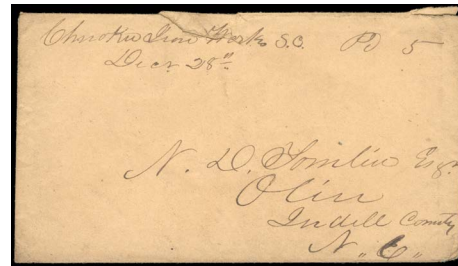 Cherokee Iron Works S.C. Pd 5
Decr 28"
N. D. Tomlin Esqr
Olin
Iredell County
N. C.